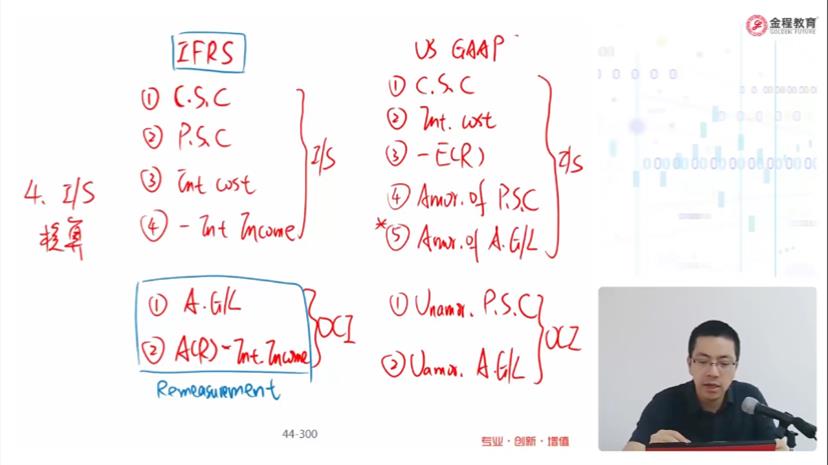 金程教育
GOLDEN FUTURE
IFRS
① C.S.C
② P.S.C
③ Int cost
④ - Int Income
I/S
4. I/S
核算
① A.G/L
② A(R) - Int. Income
OCI
Remeasurement
US GAAP
① C.S.C
② Int. cost
③ - E(R)
④ Amor. of P.S.C
* ⑤ Amor. of A.G/L
I/S
① Unamor. P.S.C
② Unamor. A.G/L
OCI
44-300
专业·创新·增值